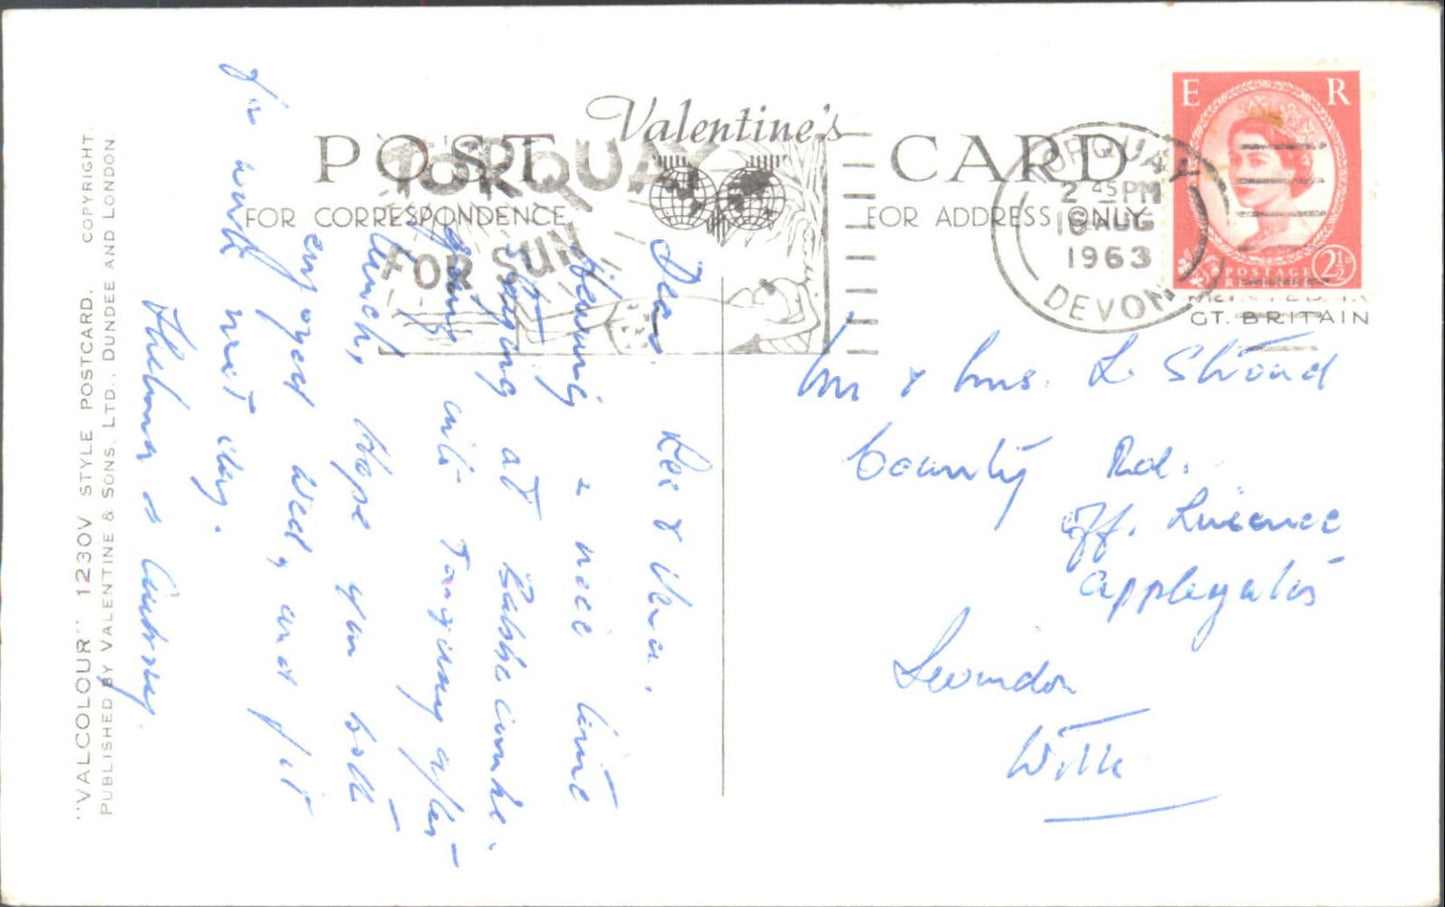 Valentine's
POST CARD
FOR CORRESPONDENCE
FOR ADDRESS ONLY
TORQUAY
FOR SUN
TORQUAY
2 45 PM
AUG
1963
DEVON
E R
POSTAGE
2½D
PRINTED IN
GT. BRITAIN
Dear Les & Vera.
Having a nice time
stopping at Babbacombe.
going into Torquay after
lunch, Hope you both
enjoyed Weed, and fit
for work next day.
Thelma & Aubrey.
Mr & Mrs. L. Stroud
County Rd.
Off. Licence
Applegates
Swindon
Wilts
"VALCOLOUR" 1230V STYLE POSTCARD. COPYRIGHT.
PUBLISHED BY VALENTINE & SONS, LTD., DUNDEE AND LONDON